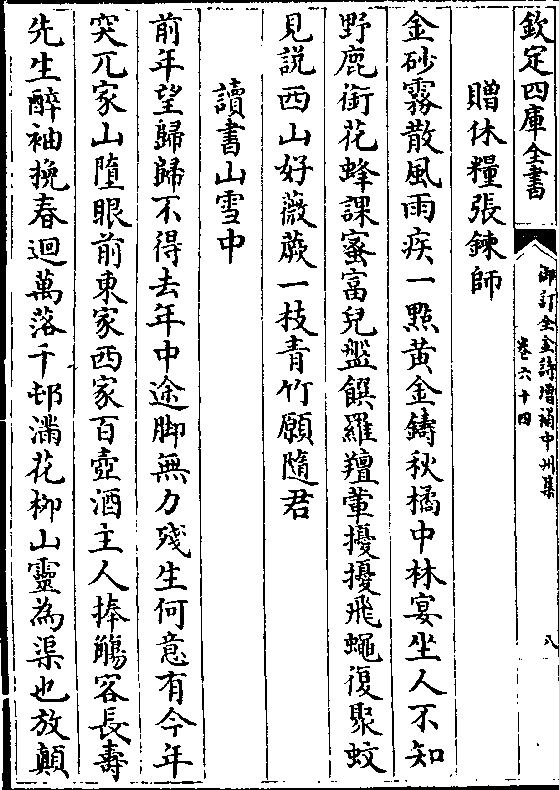 欽定四庫全書
御訂全金詩增補中州集
卷六十四
八
贈休糧張鍊師
金砂霧散風雨疾一點黄金鑄秋橘中林宴坐人不知
野鹿銜花蜂課蜜富兒盤饌羅羶葷擾擾飛蠅復聚蚊
見説西山好薇蕨一枝青竹願隨君
讀書山雪中
前年望歸歸不得去年中途脚無力殘生何意有今年
突兀家山墮眼前東家西家百壺酒主人捧觴客長壽
先生醉袖挽春迴萬落千邨滿花柳山靈為渠也放顛